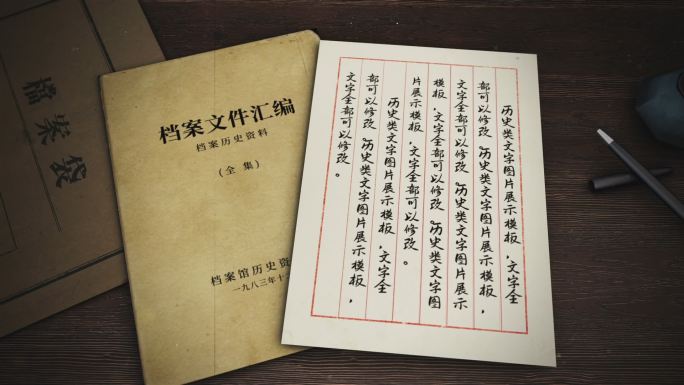 檔案袋
档案文件汇编
档案历史资料
(全集)
档案馆历史资
一九八三年十
历史类文字图片展示模板,文字全
部可以修改。历史类文字图片展示模板,
文字全部可以修改。历史类文字图片展示
模板,文字全部可以修改。历史类文字图
片展示模板,文字全部可以修改。
历史类文字图片展示模板,文字全
部可以修改。历史类文字图片展示模板,
文字全部可以修改。